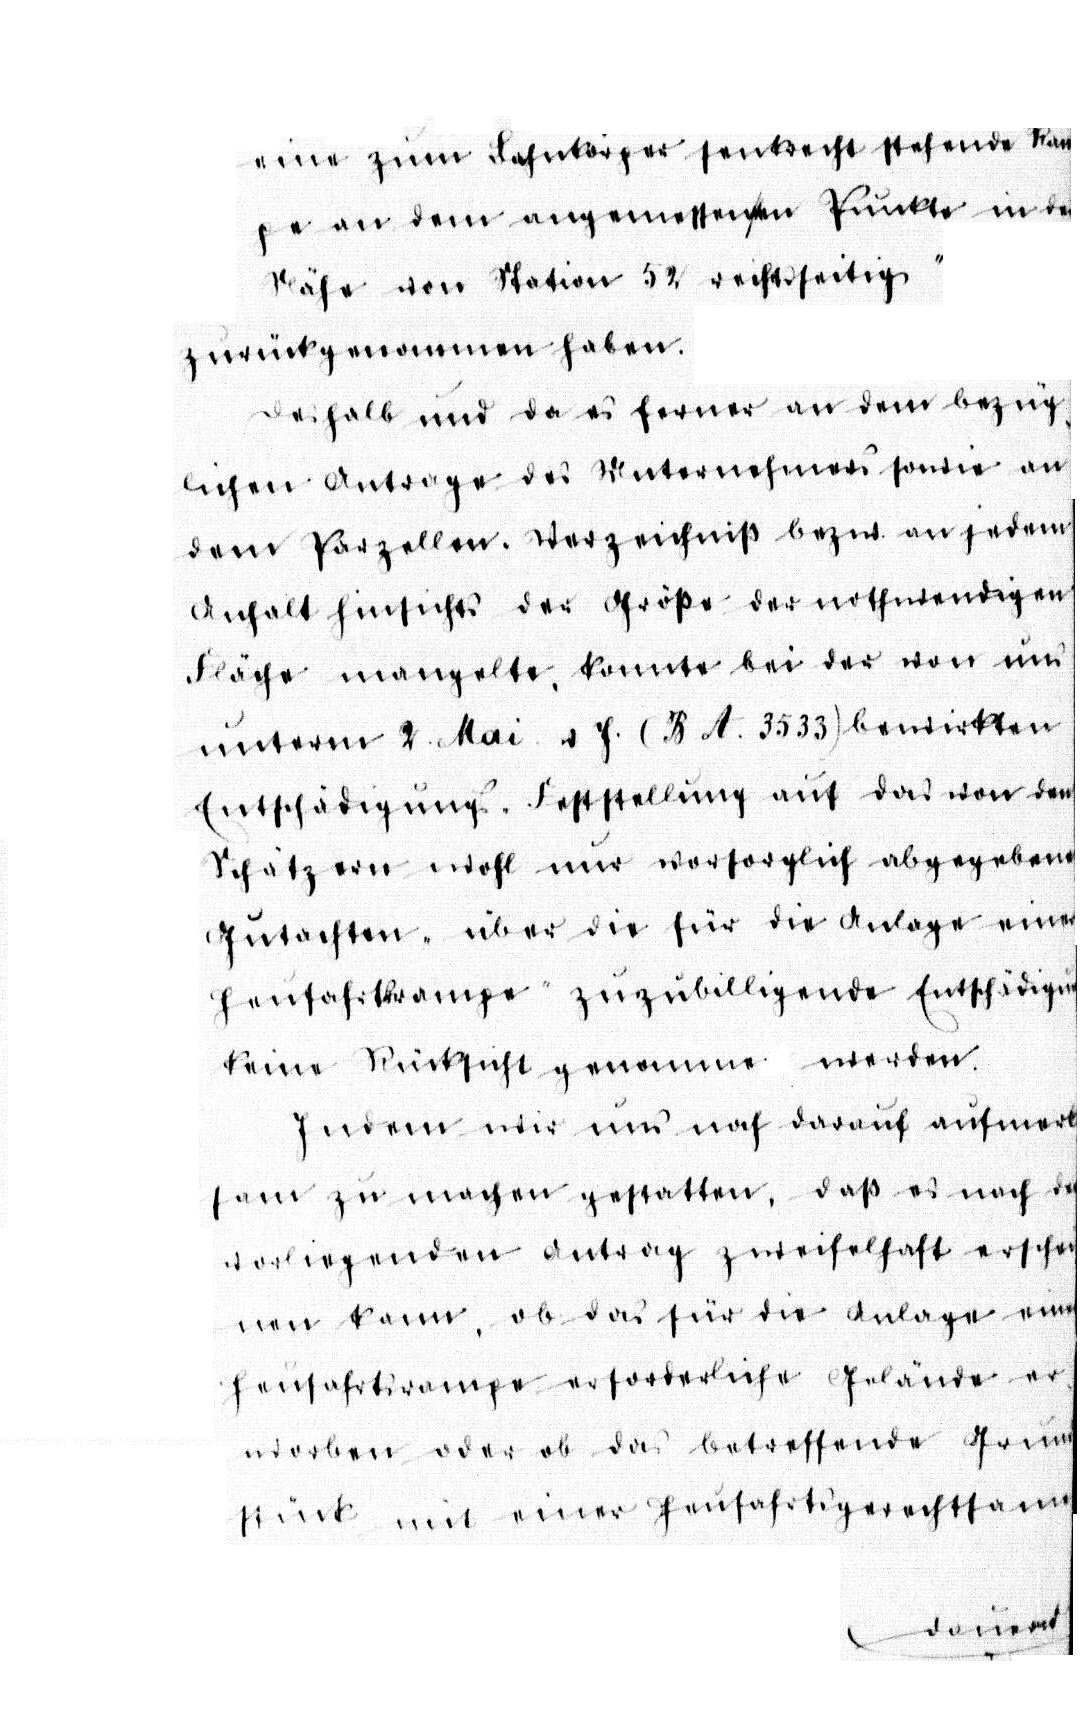 eine zum Bahnkörper senkrecht stehende Ram
pe an dem angemessenen Punkte in der
Nähe von Station 52 rechtsseitig"
zurückgenommen haben.
Deshalb und da es ferner an dem bezüg-
lichen Antrage des Unternehmers sowie an
dem Parzellen-Verzeichniß bezw. an jedem
Anhalt hinsichts der Größe der nothwendigen
Fläche mangelte, konnte bei der von uns
unterm 2. Mai d J. (B A. 3533) bewirkten
Entschädigungs-Feststellung auf das von den
Schätzern wohl nur vorsorglich abgegebene
Gutachten „über die für die Anlage einer
rampe" zuzubilligende Entschädigung
keine Rücksicht genomme werden.
Indem wir uns noch darauf aufmerk
sam zu machen gestatten, daß es nach de
vorliegenden Antrag zweifelhaft erschei
nen kann, ob das für die Anlage einer
rampe erforderliche Gelände er-
worben oder ob das betreffende Grund
stück mit einer gerechtsame
dauernd